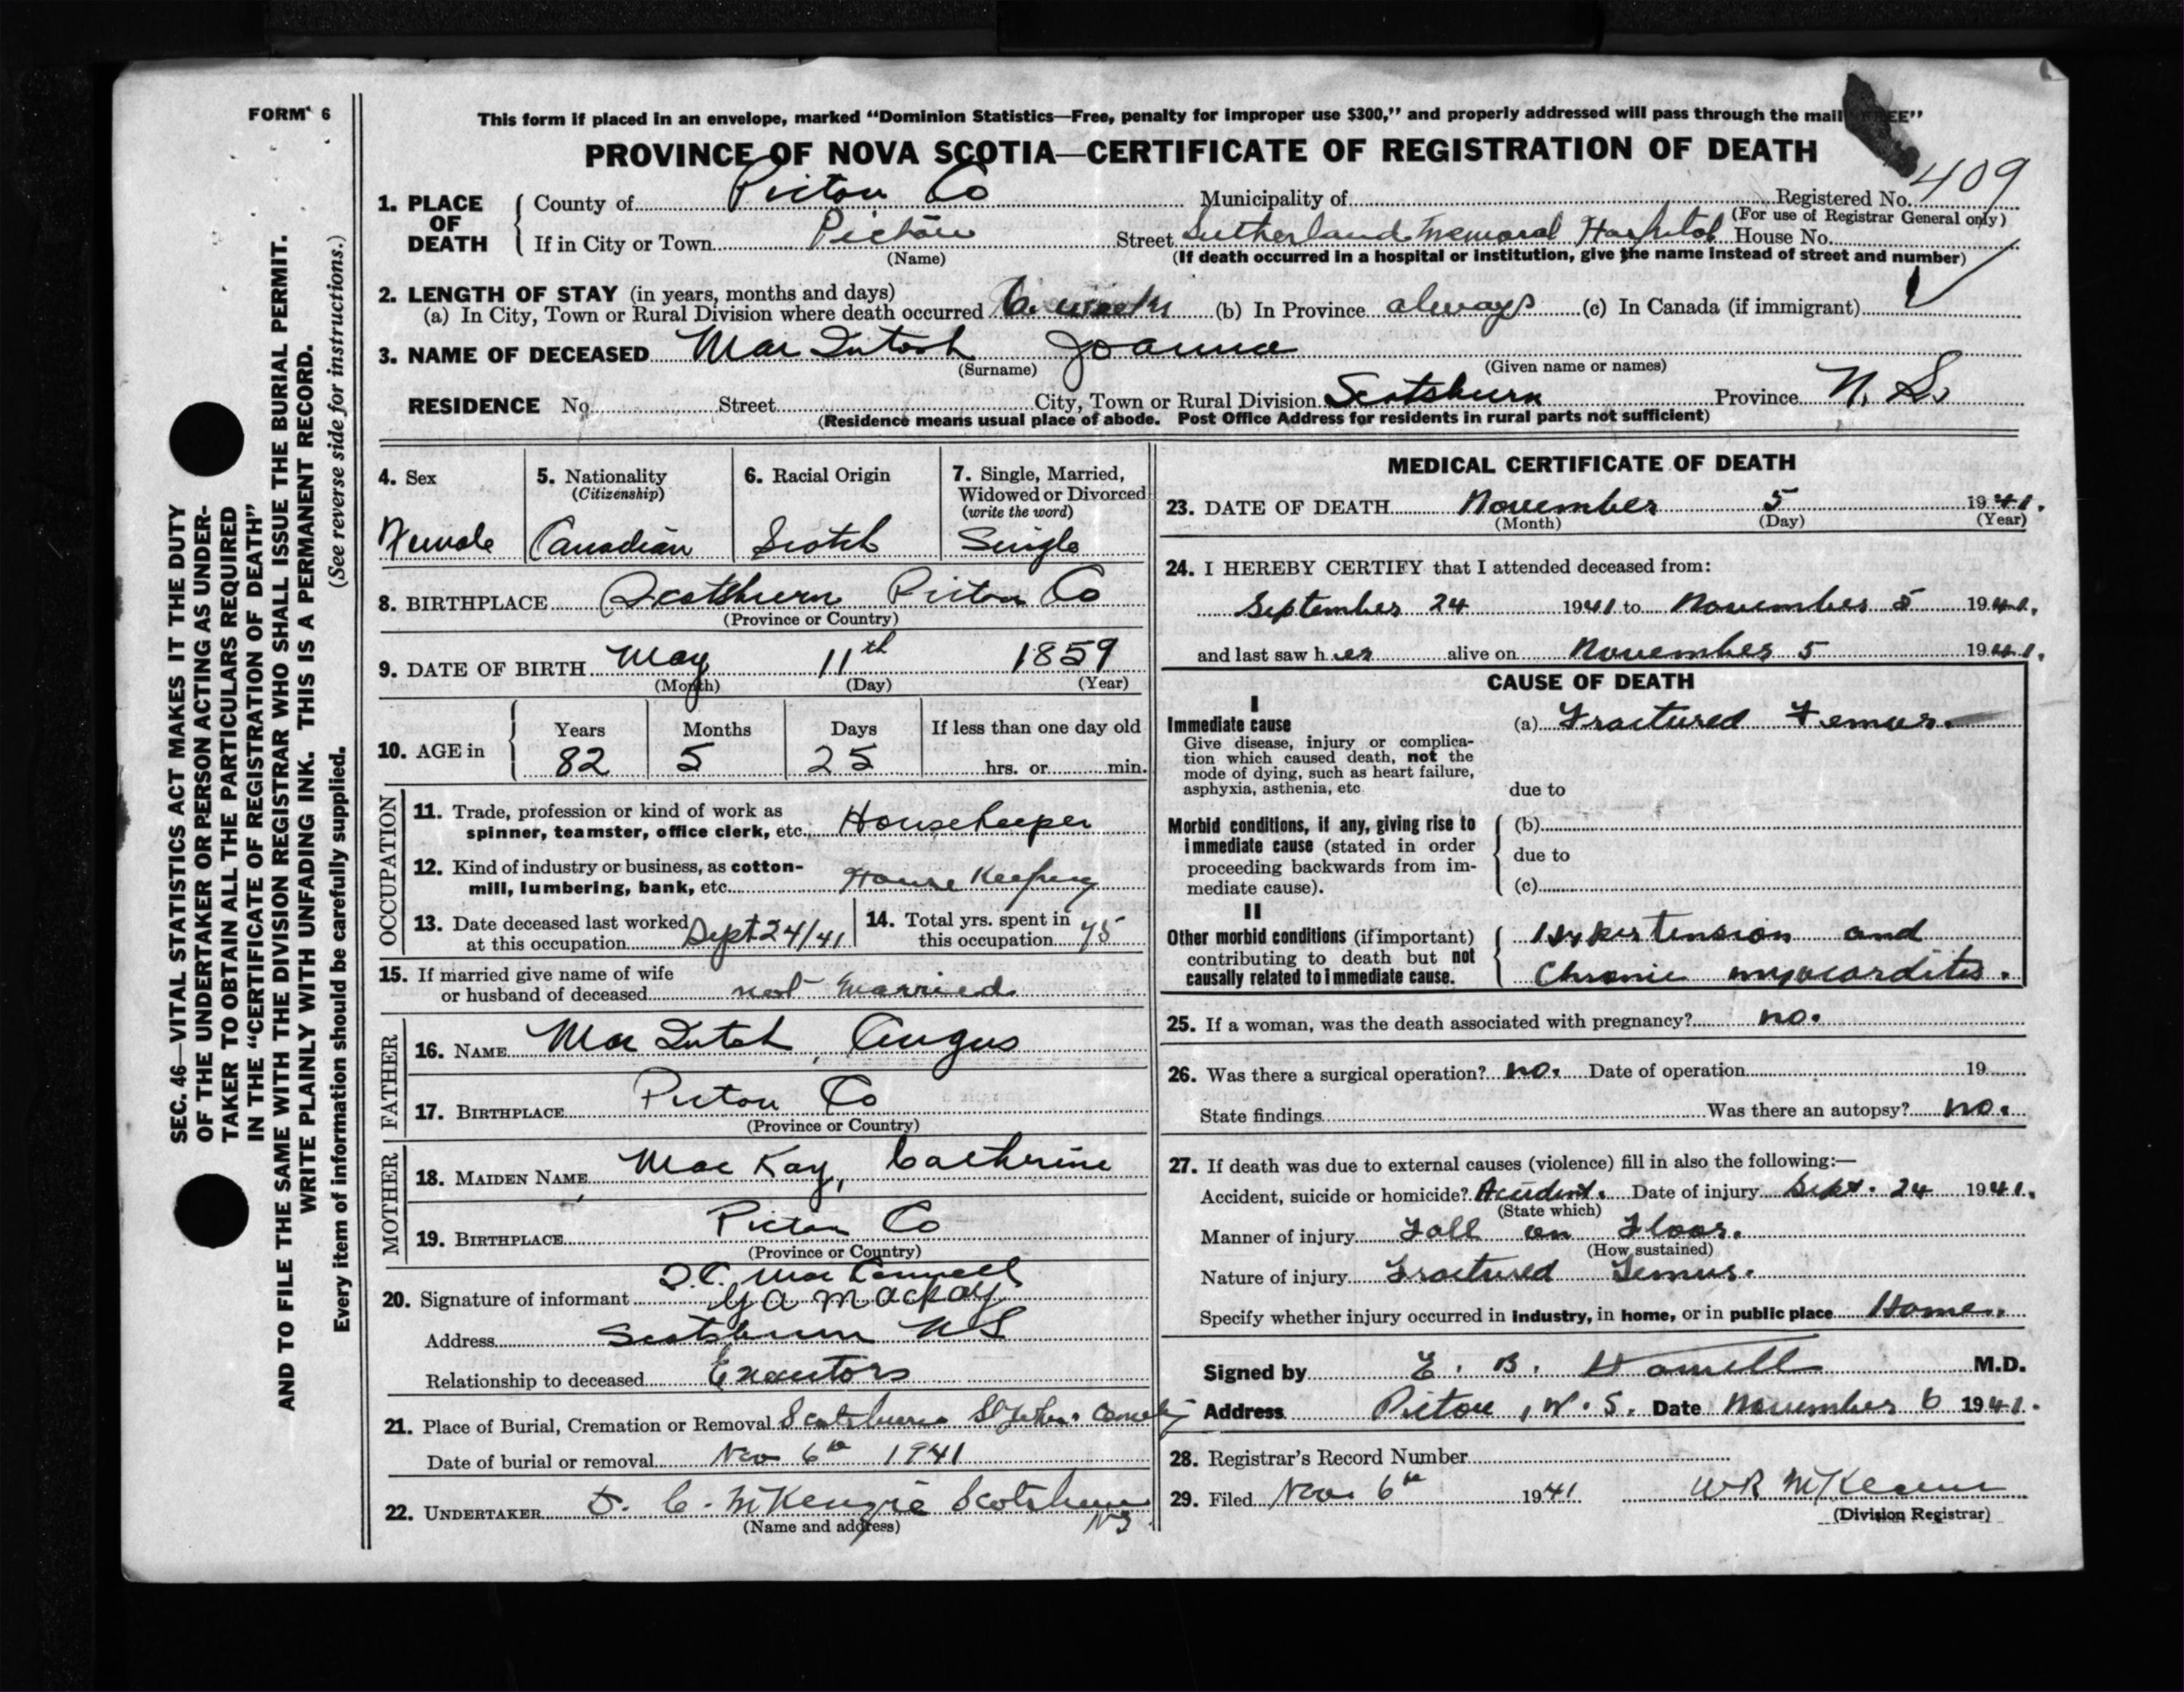 FORM 6
This form if placed in an envelope, marked “Dominion Statistics—Free, penalty for improper use $300,” and properly addressed will pass through the mail
PROVINCE OF NOVA SCOTIA—CERTIFICATE OF REGISTRATION OF DEATH
1. PLACE OF DEATH
County of Pictou Co Municipality of Registered No. 409
(For use of Registrar General only)
If in City or Town Pictou Street Sutherland Memorial Hospital House No.
(Name) (If death occurred in a hospital or institution, give the name instead of street and number)
2. LENGTH OF STAY (in years, months and days)
(a) In City, Town or Rural Division where death occurred 6 weeks (b) In Province always (c) In Canada (if immigrant)
3. NAME OF DECEASED MacIntosh Joanna
(Surname) (Given name or names)
RESIDENCE No. Street City, Town or Rural Division Scotsburn Province N. S.
(Residence means usual place of abode. Post Office Address for residents in rural parts not sufficient)
4. Sex
Female
5. Nationality
(Citizenship)
Canadian
6. Racial Origin
Scotch
7. Single, Married,
Widowed or Divorced
(write the word)
Single
8. BIRTHPLACE Scotsburn Pictou Co
(Province or Country)
9. DATE OF BIRTH May 11th 1859
(Month) (Day) (Year)
10. AGE in
Years Months Days If less than one day old
82 5 25 hrs. or min.
OCCUPATION
11. Trade, profession or kind of work as
spinner, teamster, office clerk, etc. Housekeeper
12. Kind of industry or business, as cotton-
mill, lumbering, bank, etc. House Keeping
13. Date deceased last worked
at this occupation Sept 24/41
14. Total yrs. spent in
this occupation
15. If married give name of wife
or husband of deceased not married
FATHER
16. NAME MacIntosh, Angus
17. BIRTHPLACE Pictou Co
(Province or Country)
MOTHER
18. MAIDEN NAME MacKay, Catherine
19. BIRTHPLACE Pictou Co
(Province or Country)
20. Signature of informant
G A MacKay
Address Scotsburn NS
Relationship to deceased Executors
21. Place of Burial, Cremation or Removal Scotsburn St Johns Cemetery
Date of burial or removal Nov 6th 1941
22. UNDERTAKER C. McKenzie Scotsburn
NS
(Name and address)
MEDICAL CERTIFICATE OF DEATH
23. DATE OF DEATH November 5 1941.
(Month) (Day) (Year)
24. I HEREBY CERTIFY that I attended deceased from:
September 24 1941 to November 5 1941.
and last saw her alive on November 5 1941.
CAUSE OF DEATH
I
Immediate cause (a) Fractured Femur.
Give disease, injury or complica-
tion which caused death, not the
mode of dying, such as heart failure,
asphyxia, asthenia, etc. due to
Morbid conditions, if any, giving rise to (b)
immediate cause (stated in order due to
proceeding backwards from im-
mediate cause). (c)
II
Other morbid conditions (if important) Hypertension and
contributing to death but not
causally related to immediate cause. Chronic myocarditis.
25. If a woman, was the death associated with pregnancy? no.
26. Was there a surgical operation? no. Date of operation 19
State findings Was there an autopsy? no.
27. If death was due to external causes (violence) fill in also the following:—
Accident, suicide or homicide? Accident. Date of injury Sept. 24 1941.
(State which)
Manner of injury Fall on Floor.
(How sustained)
Nature of injury Fractured Femur.
Specify whether injury occurred in industry, in home, or in public place Home.
Signed by E. B. M.D.
Address Pictou, N.S. Date November 6 1941.
28. Registrar's Record Number
29. Filed Nov 6th 1941
(Division Registrar)
SEC. 46—VITAL STATISTICS ACT MAKES IT THE DUTY
OF THE UNDERTAKER OR PERSON ACTING AS UNDER-
TAKER TO OBTAIN ALL THE PARTICULARS REQUIRED
IN THE “CERTIFICATE OF REGISTRATION OF DEATH”
AND TO FILE THE SAME WITH THE DIVISION REGISTRAR WHO SHALL ISSUE THE BURIAL PERMIT.
WRITE PLAINLY WITH UNFADING INK. THIS IS A PERMANENT RECORD.
Every item of information should be carefully supplied. (See reverse side for instructions.)